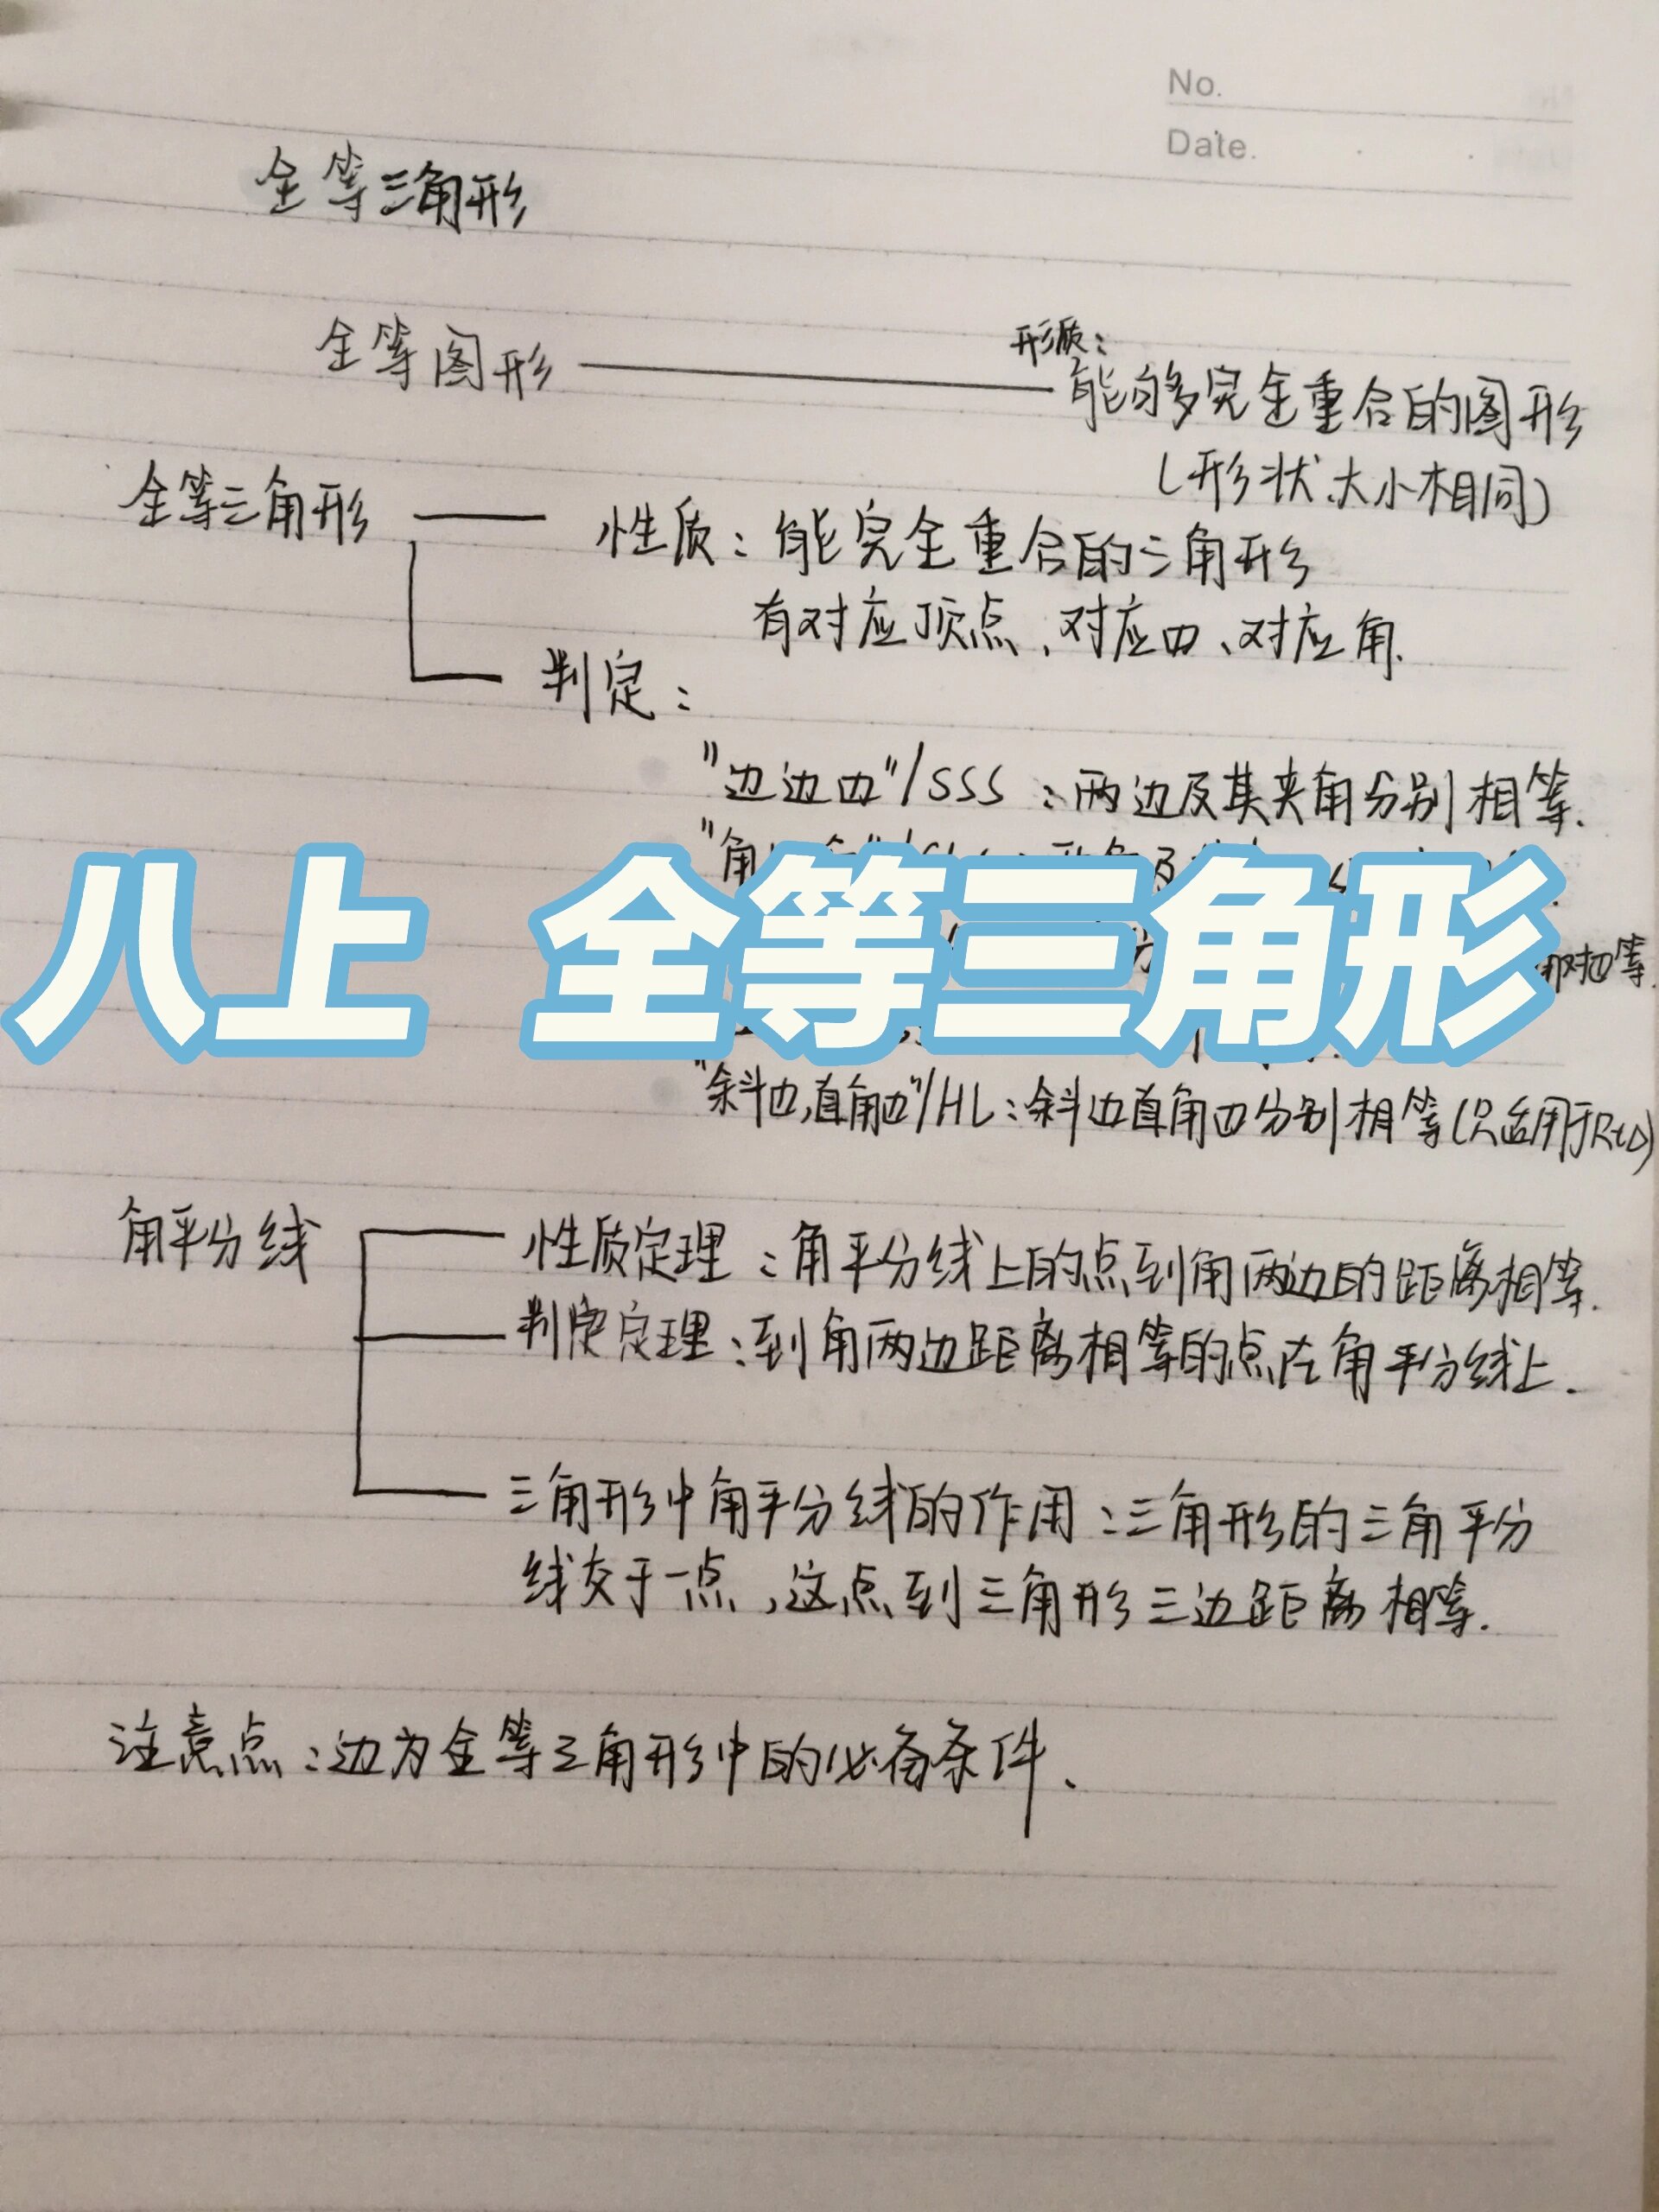 No.
Date.
全等三角形
全等图形
形质：
能够完全重合的图形
(形状、大小相同)
全等三角形
性质：能完全重合的三角形
有对应顶点、对应边、对应角.
判定：
"边边边"/SSS：两边及其夹角分别相等.
"角
八上 全等三角形
等.
"斜边,直角边"/HL：斜边直角边分别相等(只适用于Rt△)
角平分线
性质定理：角平分线上的点到角两边的距离相等.
判定定理：到角两边距离相等的点在角平分线上.
三角形中角平分线的作用：三角形的三角平分
线交于一点,这点到三角形三边距离相等.
注意点：边为全等三角形中的必备条件、